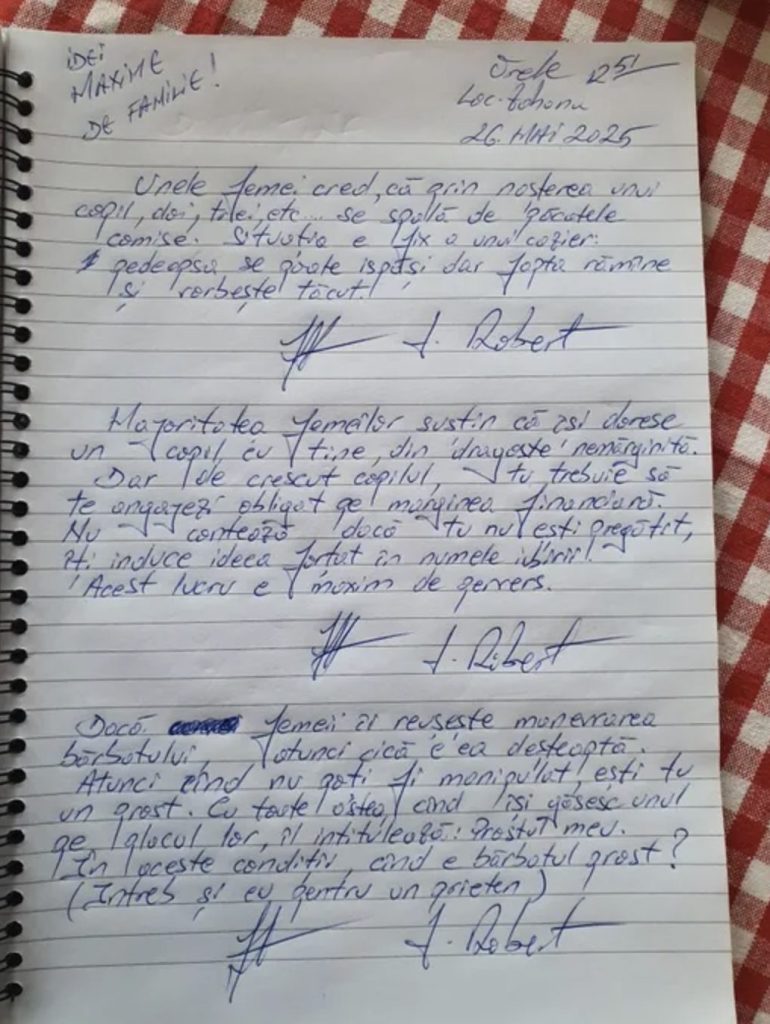 IDEI
MAXIME
DE FAMILIE!
Orele 12 51
Loc. Zohanu
26. MAI 2025
Unele femei cred, că prin nașterea unui
copil, doi, trei, etc... se spală de păcatele
comise. Situația e fix a unui cazier:
pedeapsa se poate ispăși dar fapta rămîne
și vorbește tăcut!
J. Robert
Majoritatea femeilor susțin că își doresc
un copil cu tine, din 'dragoste' nemărginită.
Dar de crescut copilul, tu trebuie să
te angajezi obligat pe marginea financiară.
Nu contează dacă tu nu ești pregătit,
îți induce ideea forțat în numele iubirii!
Acest lucru e maxim de pervers.
J. Robert
Dacă femeii îi reușește manevrarea
bărbatului, atunci cică e ea deșteaptă.
Atunci cînd nu poți fi manipulat, ești tu
un prost. Cu toate astea, cînd își găsesc unul
pe placul lor, îl intitulează: Prostul meu.
În aceste condiții, cînd e bărbatul prost?
(Întreb și eu pentru un prieten)
J. Robert